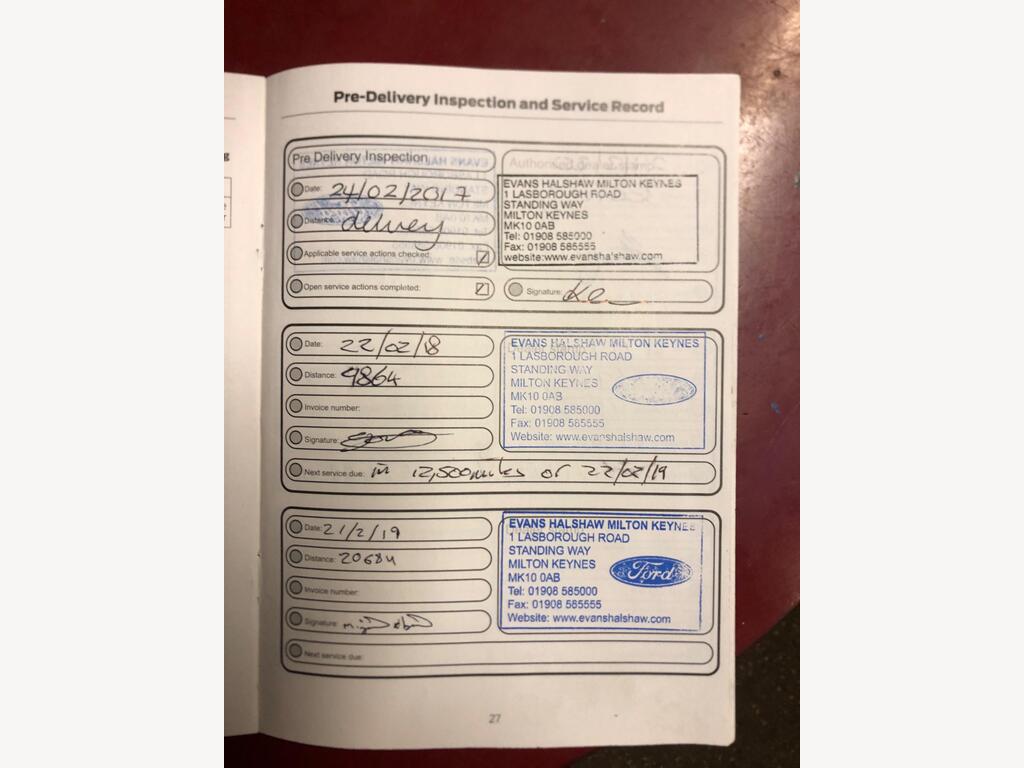 Pre-Delivery Inspection and Service Record
Pre Delivery Inspection
Date: 24/02/2017
Distance: delivery
Applicable service actions checked:
Open service actions completed:
Authorised dealer stamp
EVANS HALSHAW MILTON KEYNES
1 LASBOROUGH ROAD
STANDING WAY
MILTON KEYNES
MK10 0AB
Tel: 01908 585000
Fax: 01908 585555
website:www.evanshalshaw.com
Signature:
Date: 22/02/18
Distance: 9864
Invoice number:
Signature:
EVANS HALSHAW MILTON KEYNES
1 LASBOROUGH ROAD
STANDING WAY
MILTON KEYNES
MK10 0AB
Tel: 01908 585000
Fax: 01908 585555
Website: www.evanshalshaw.com
Next service due: in 12,500 miles or 22/02/19
Date: 21/2/19
Distance: 20684
Invoice number:
Signature:
EVANS HALSHAW MILTON KEYNES
1 LASBOROUGH ROAD
STANDING WAY
MILTON KEYNES
MK10 0AB
Tel: 01908 585000
Fax: 01908 585555
Website: www.evanshalshaw.com
Ford
Next service due:
27